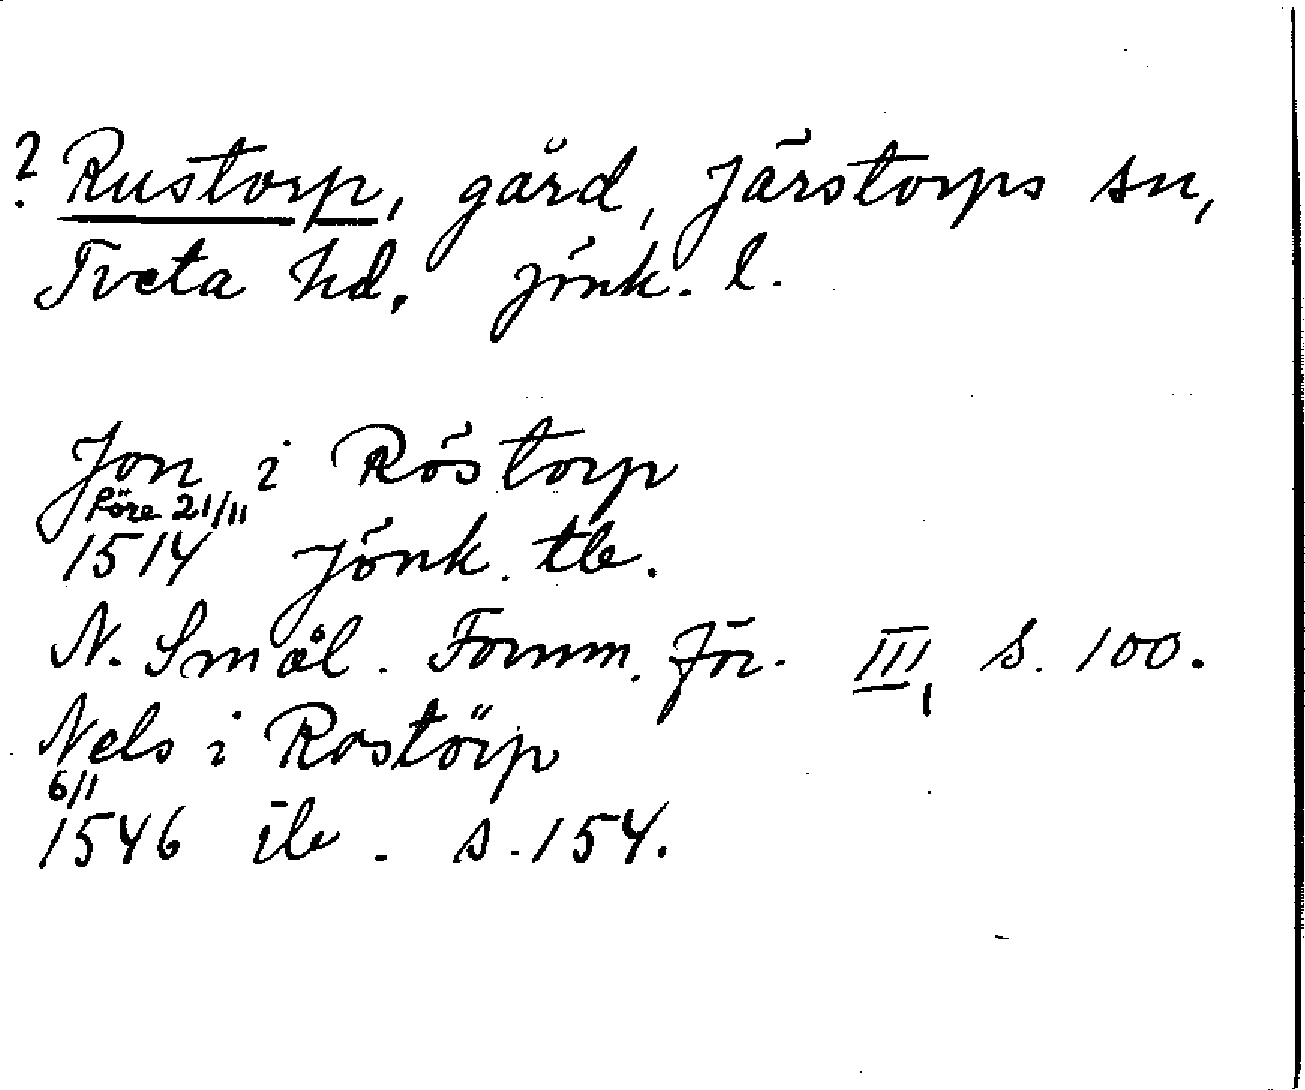 ? Rustorp, gård, Järstorps sn,
Tveta hd. Jönk. l.
Jon i Röstorp
före 21/11
1514 Jönk. tb.
N. Smål. Fornm. För. III, s. 100.
Nels i Rostörp
6/11
1546 ib. s. 154.